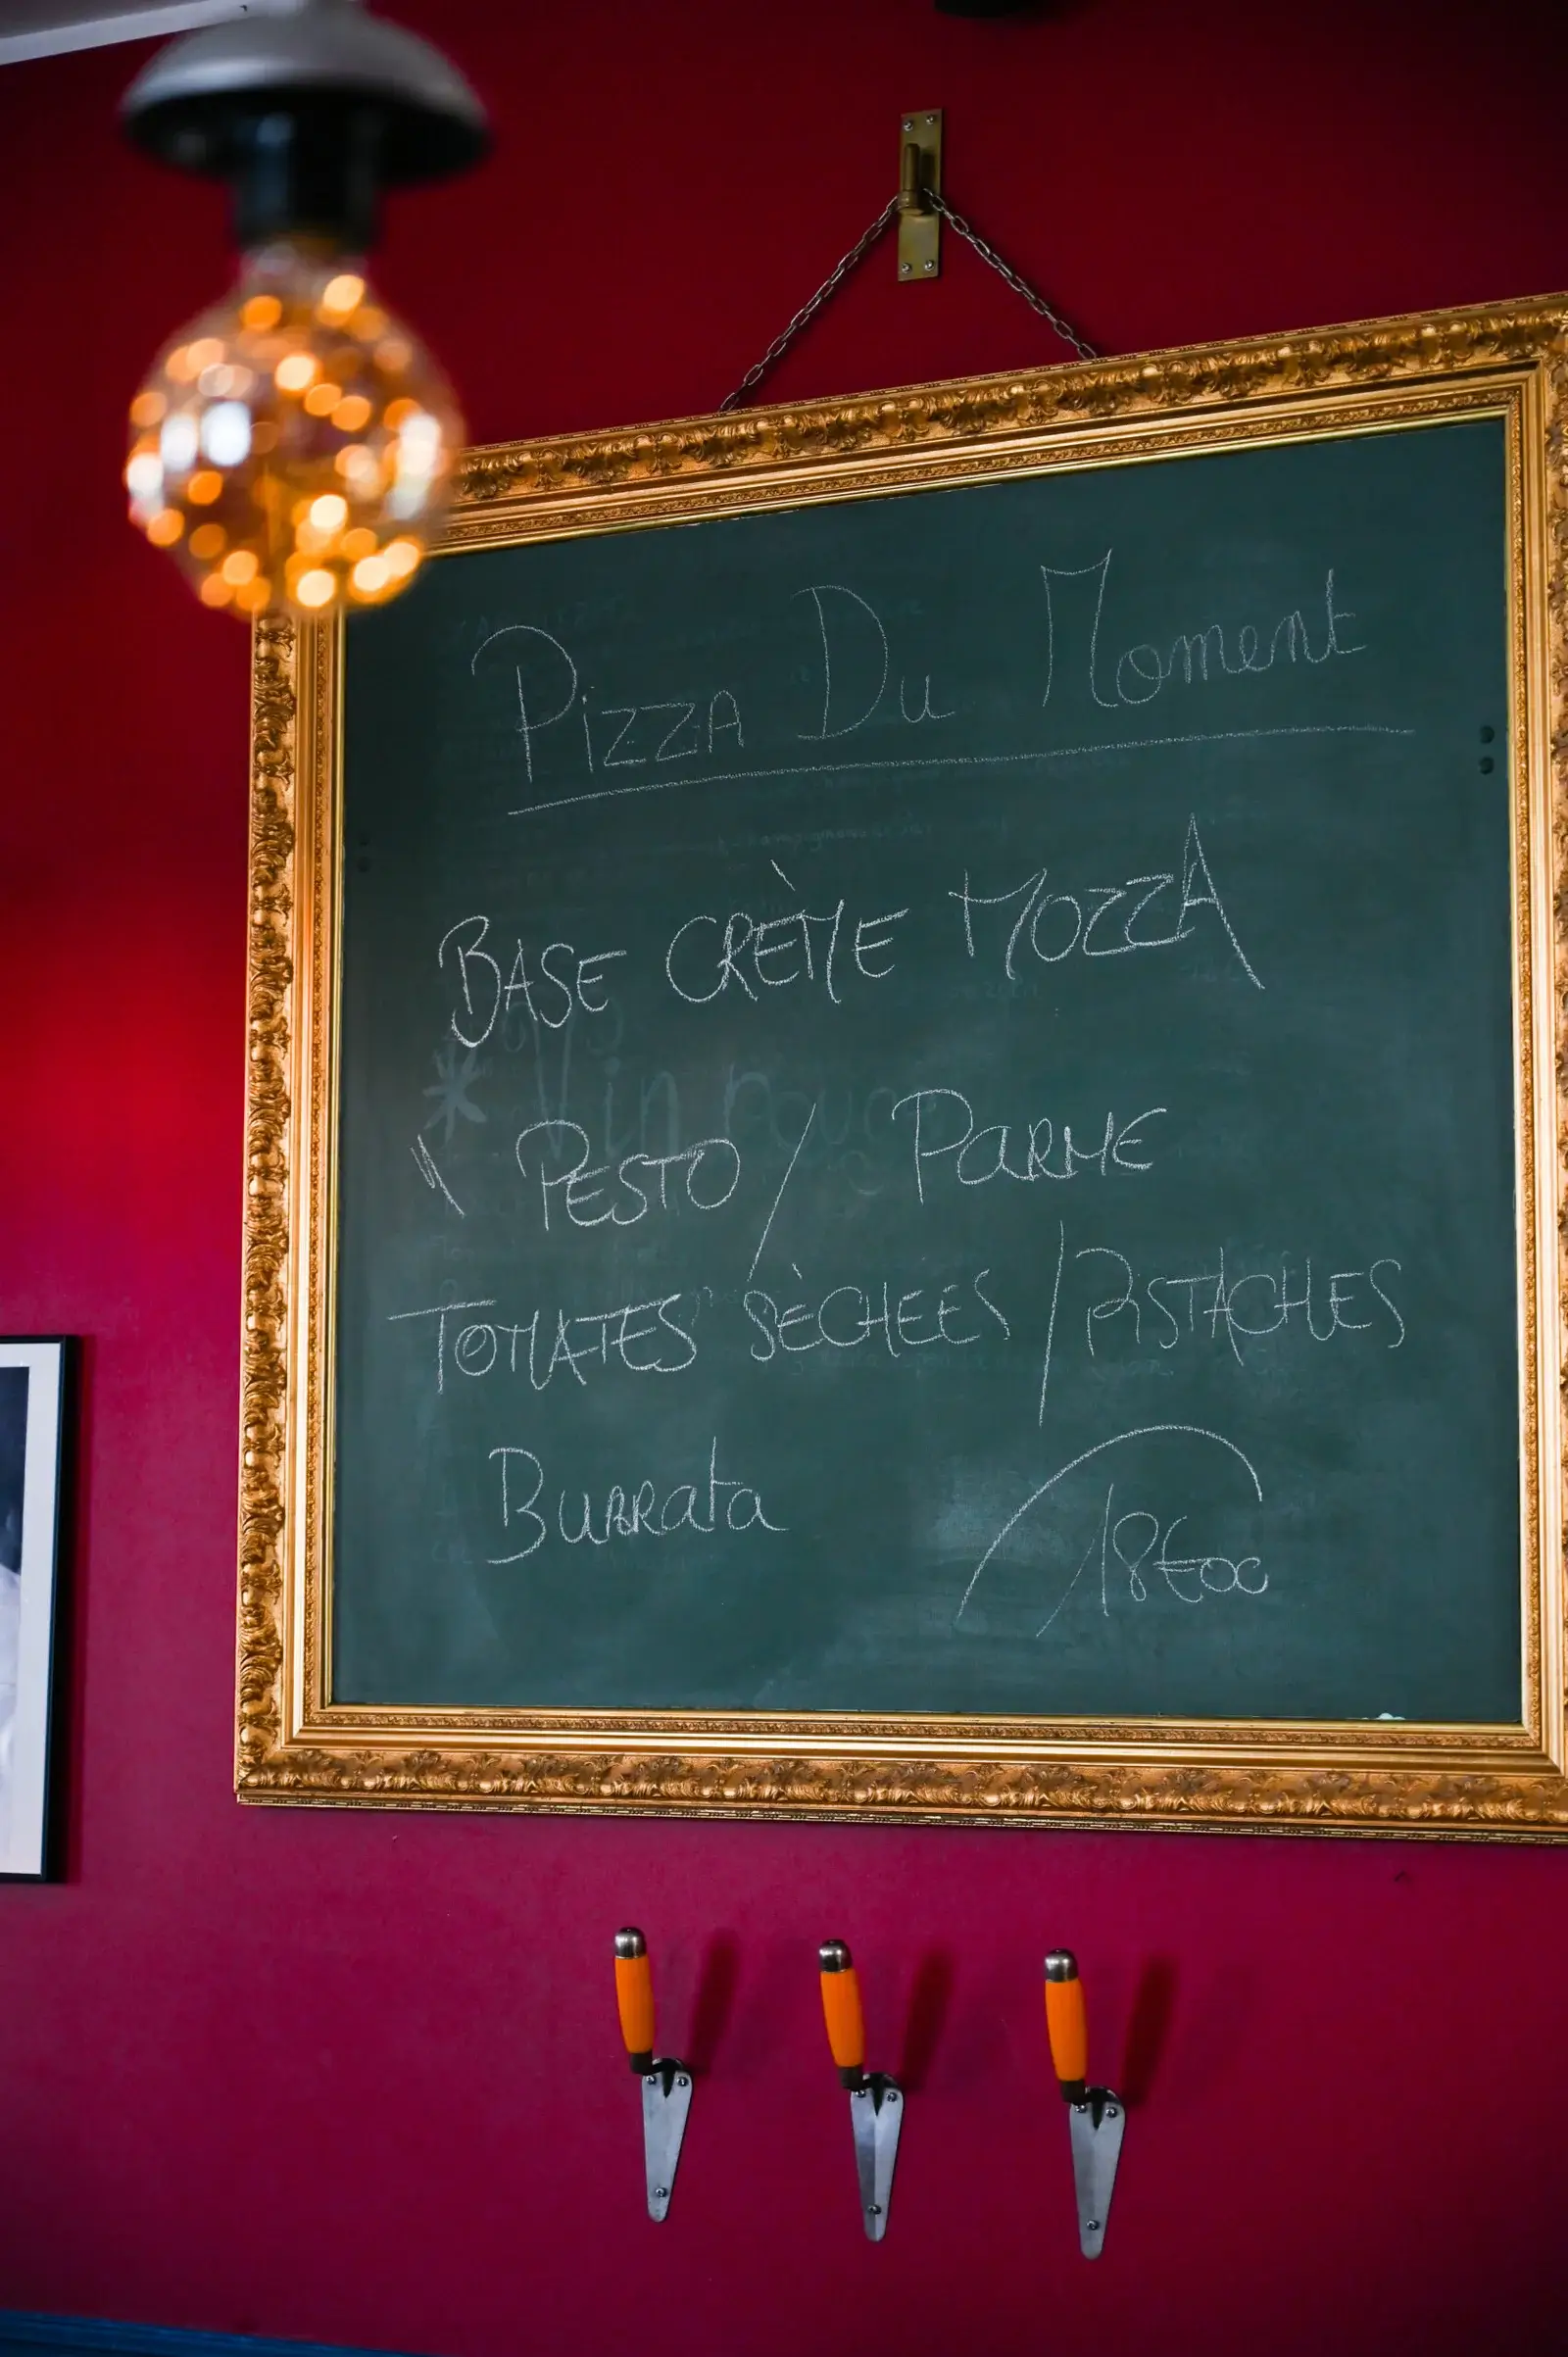 Pizza Du Moment
BASE CRÈME MOZZA
PESTO / PARME
TOMATES SÈCHEES / PISTACHES
Burrata 18€00
* Vin rouge